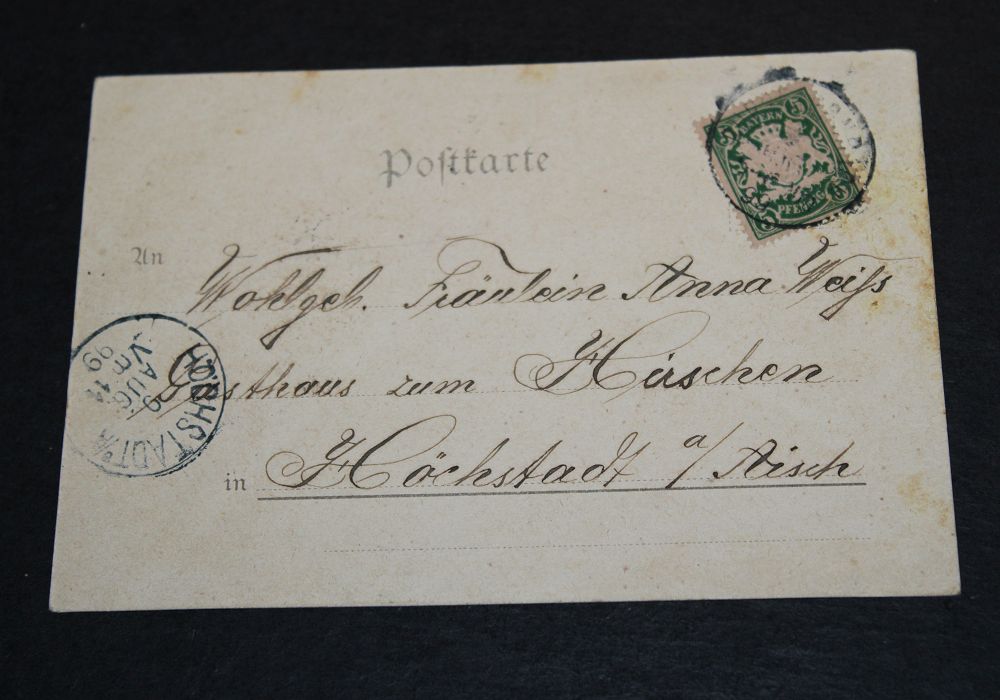 Postkarte
5 5
BAYERN
PFENNIG
5 5
An
Wohlgeb. Fräulein Anna Weiß
Gasthaus zum Hirschen
in Höchstadt a/Aisch
HÖCHSTADT a/A
AUG
99